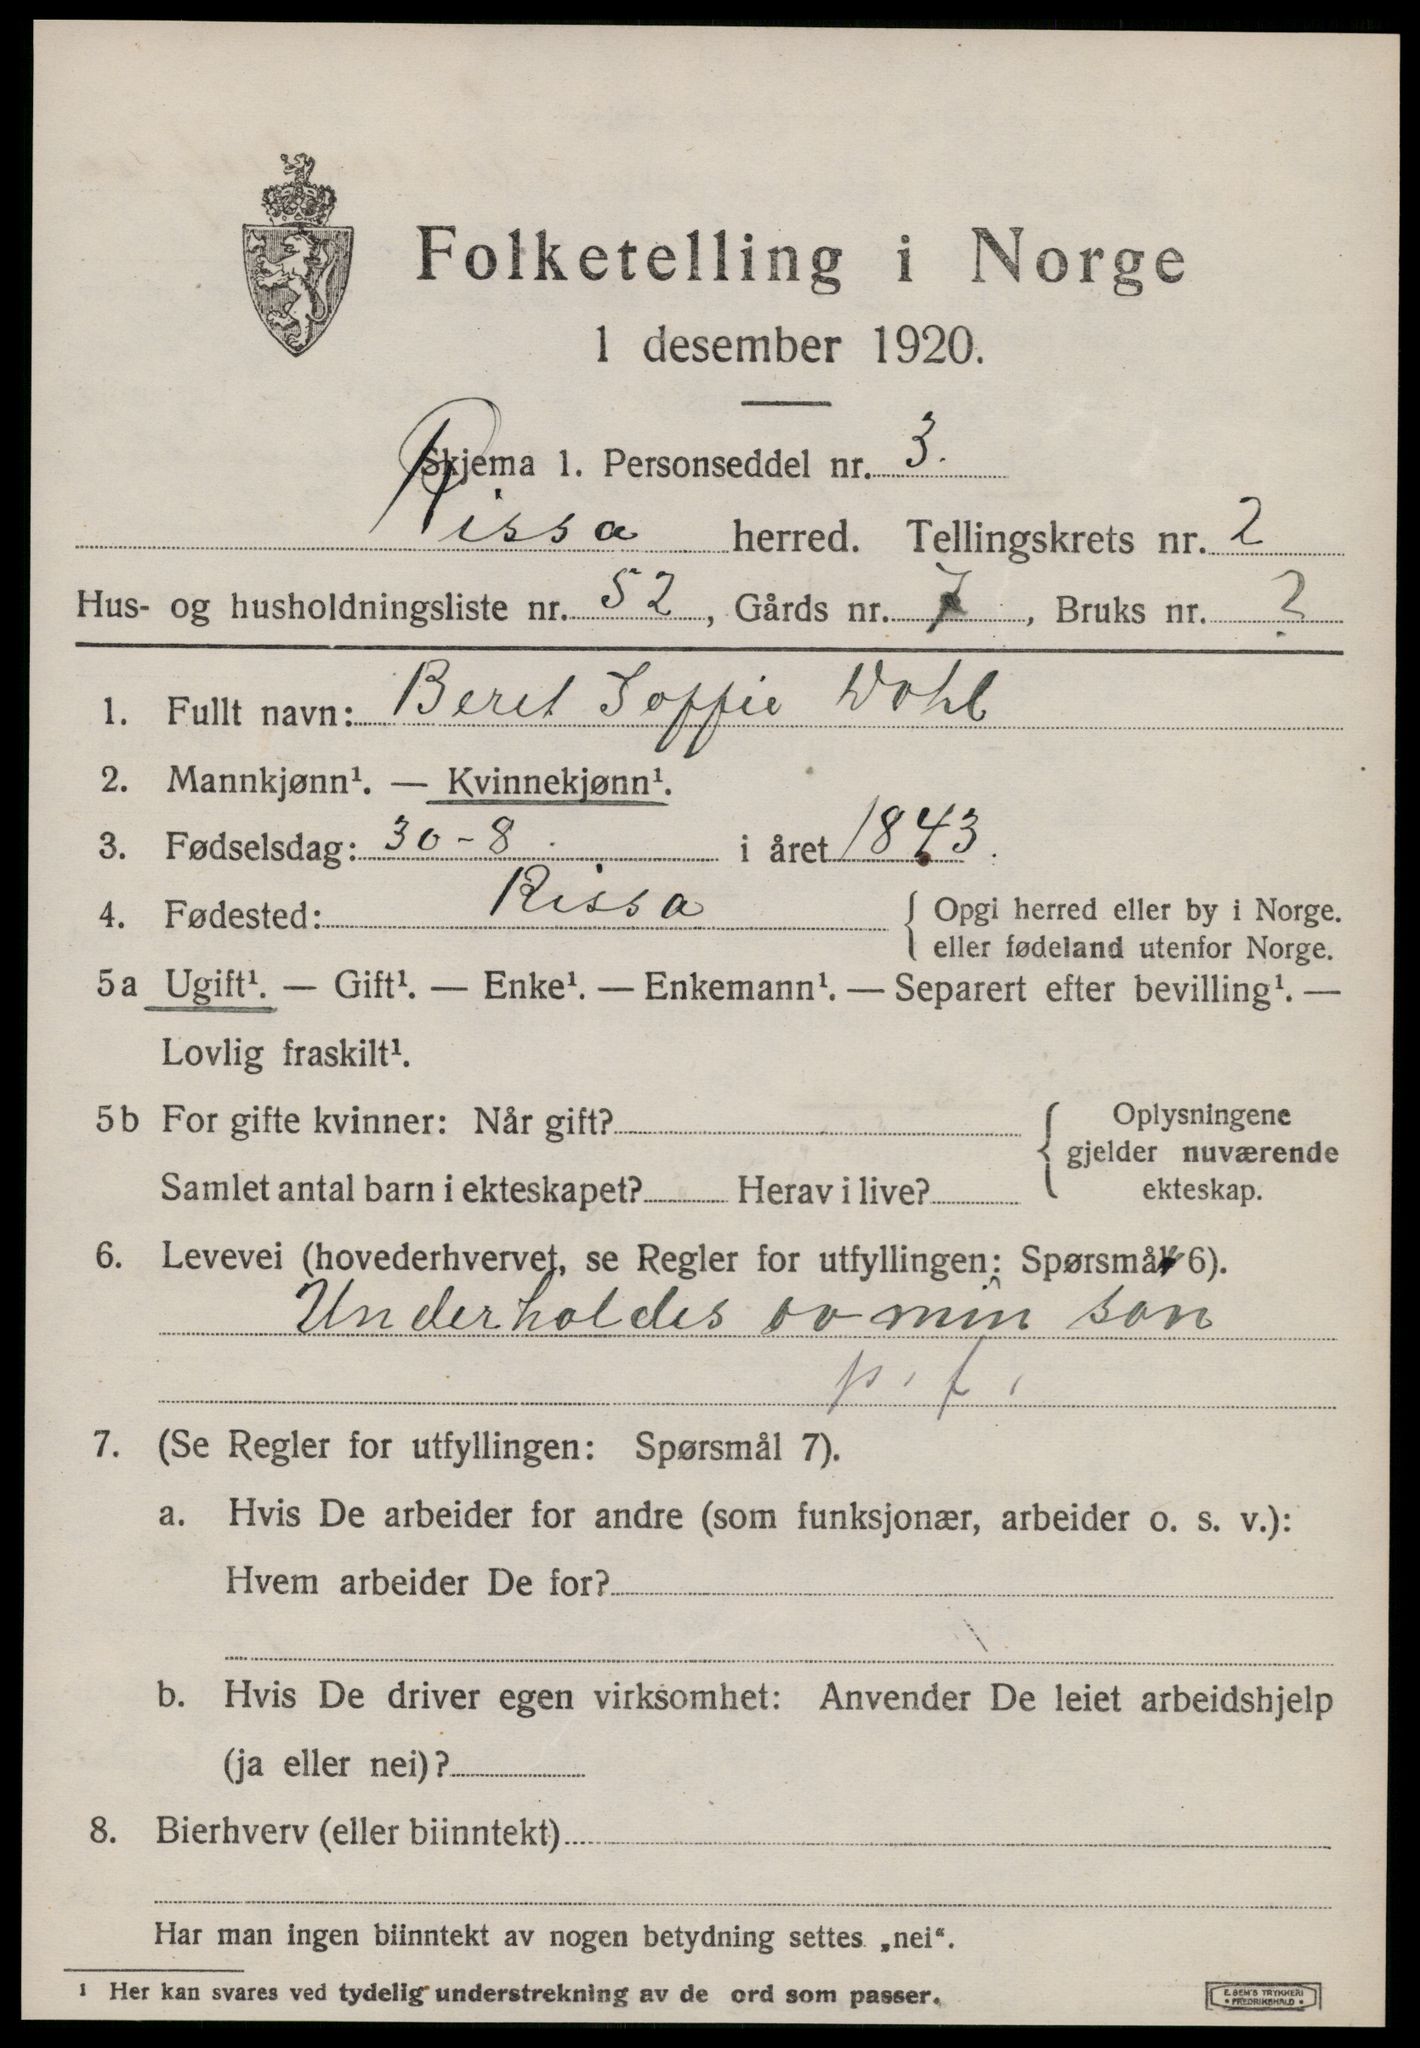 Folketelling i Norge
1 desember 1920.
Skjema 1. Personseddel nr. 3.
Rissa herred. Tellingskrets nr. 2
Hus- og husholdningsliste nr. 52, Gårds nr. 7, Bruks nr. 2
1. Fullt navn: Beret Soffie Wohl
2. Mannkjønn¹. — Kvinnekjønn¹.
3. Fødselsdag: 30-8. i året 1843.
4. Fødested: Rissa { Opgi herred eller by i Norge.
eller fødeland utenfor Norge.
5a Ugift¹. — Gift¹. — Enke¹. — Enkemann¹. — Separert efter bevilling¹. —
Lovlig fraskilt¹.
5b For gifte kvinner: Når gift? { Oplysningene
gjelder nuværende
Samlet antal barn i ekteskapet? Herav i live? ekteskap.
6. Levevei (hovederhvervet, se Regler for utfyllingen: Spørsmål 6).
Underholdes av min søn
p. f.
7. (Se Regler for utfyllingen: Spørsmål 7).
a. Hvis De arbeider for andre (som funksjonær, arbeider o. s. v.):
Hvem arbeider De for?
b. Hvis De driver egen virksomhet: Anvender De leiet arbeidshjelp
(ja eller nei)?
8. Bierhverv (eller biinntekt)
Har man ingen biinntekt av nogen betydning settes „nei“.
1 Her kan svares ved tydelig understrekning av de ord som passer.
E. SEM'S TRYKKERI
• FREDRIKSHALD •